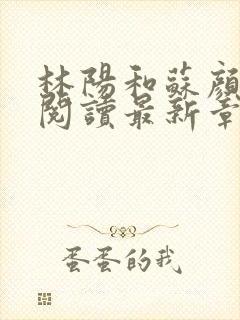 林陽和蘇顏
閱讀最新章
蛋蛋的我